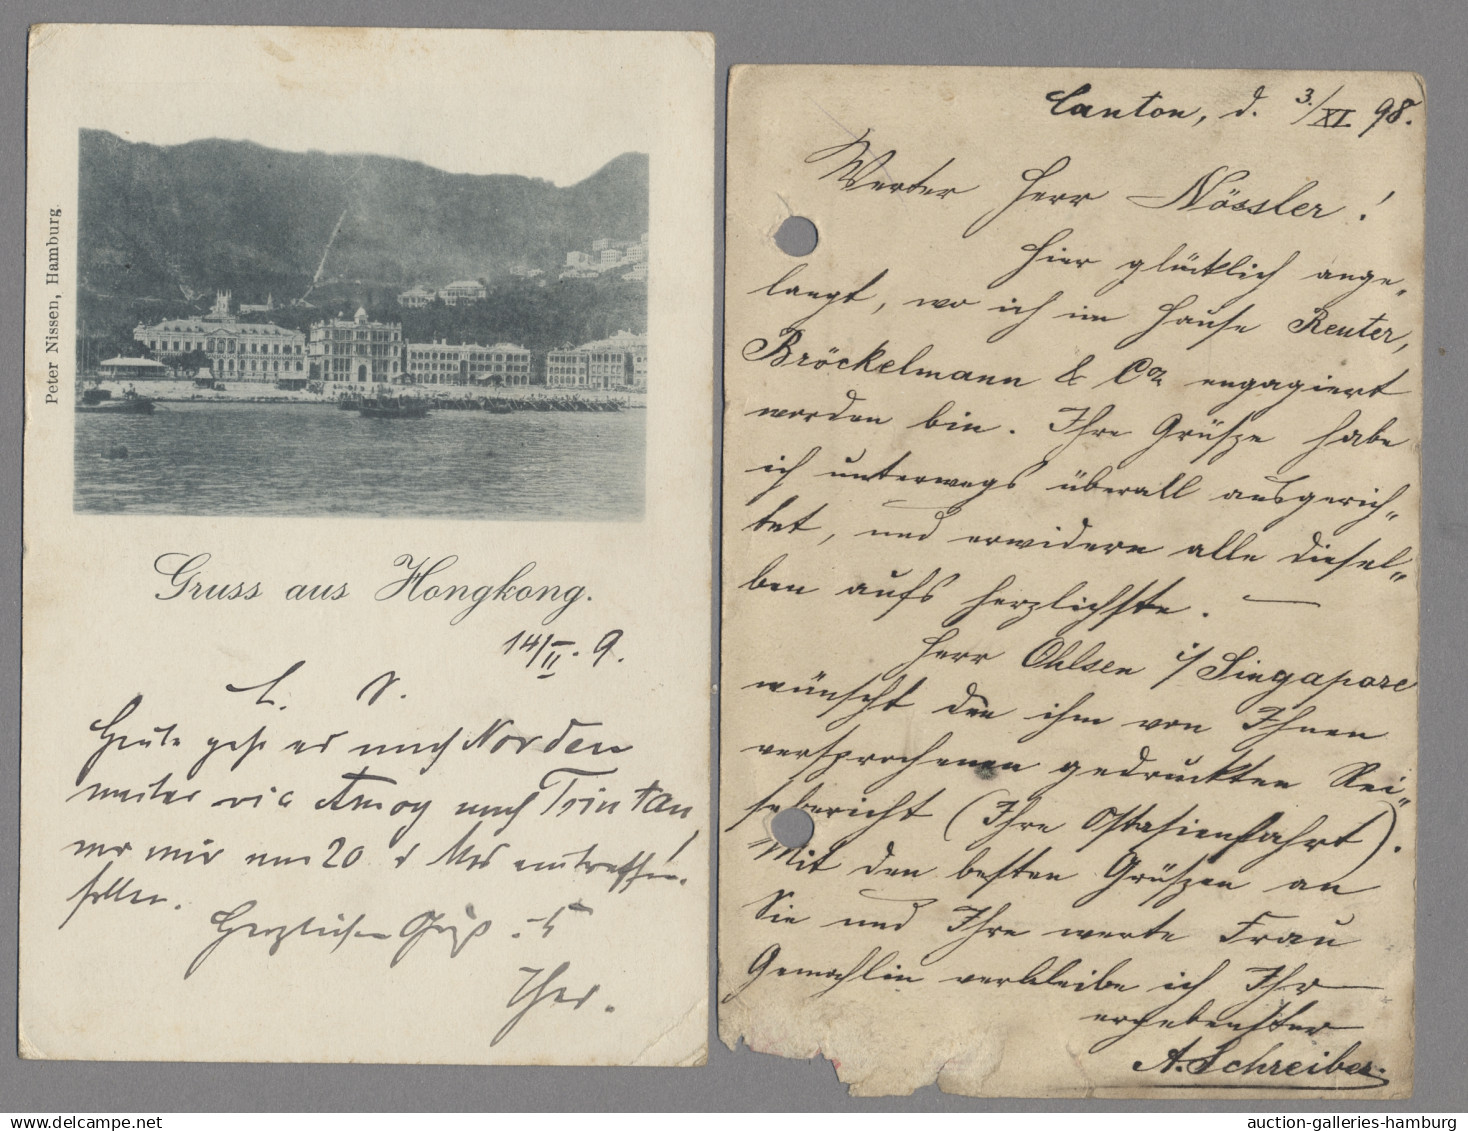 Peter Nissen, Hamburg.
Gruss aus Hongkong.
14/II. 9.
L. V.
Heute geht es nach Norden
weiter via Amoy nach Tsintau,
wo wir am 20 d Mts eintreffen
sollen.
Herzlichen Gruß
Canton, d. 3./XI 98.
Werter Herr Nössler!
Hier glücklich ange-
langt, wo ich im Hause Reuter,
Bröckelmann & Co. engagiert
worden bin. Ihre Grüsze habe
ich unterwegs überall ausgerich-
tet, und erwidern alle diesel-
ben aufs herzlichste. —
Herr Ohlsen i/Singapore
wünscht den ihm von Ihnen
versprochenen gedruckten Rei-
sebericht (Ihre Ostasienfahrt).
Mit den besten Grüszen an
Sie und Ihre werte Frau
Gemahlin verbleibe ich Ihr
ergebenster
A. Schreiber.
auction-galleries-hamburg